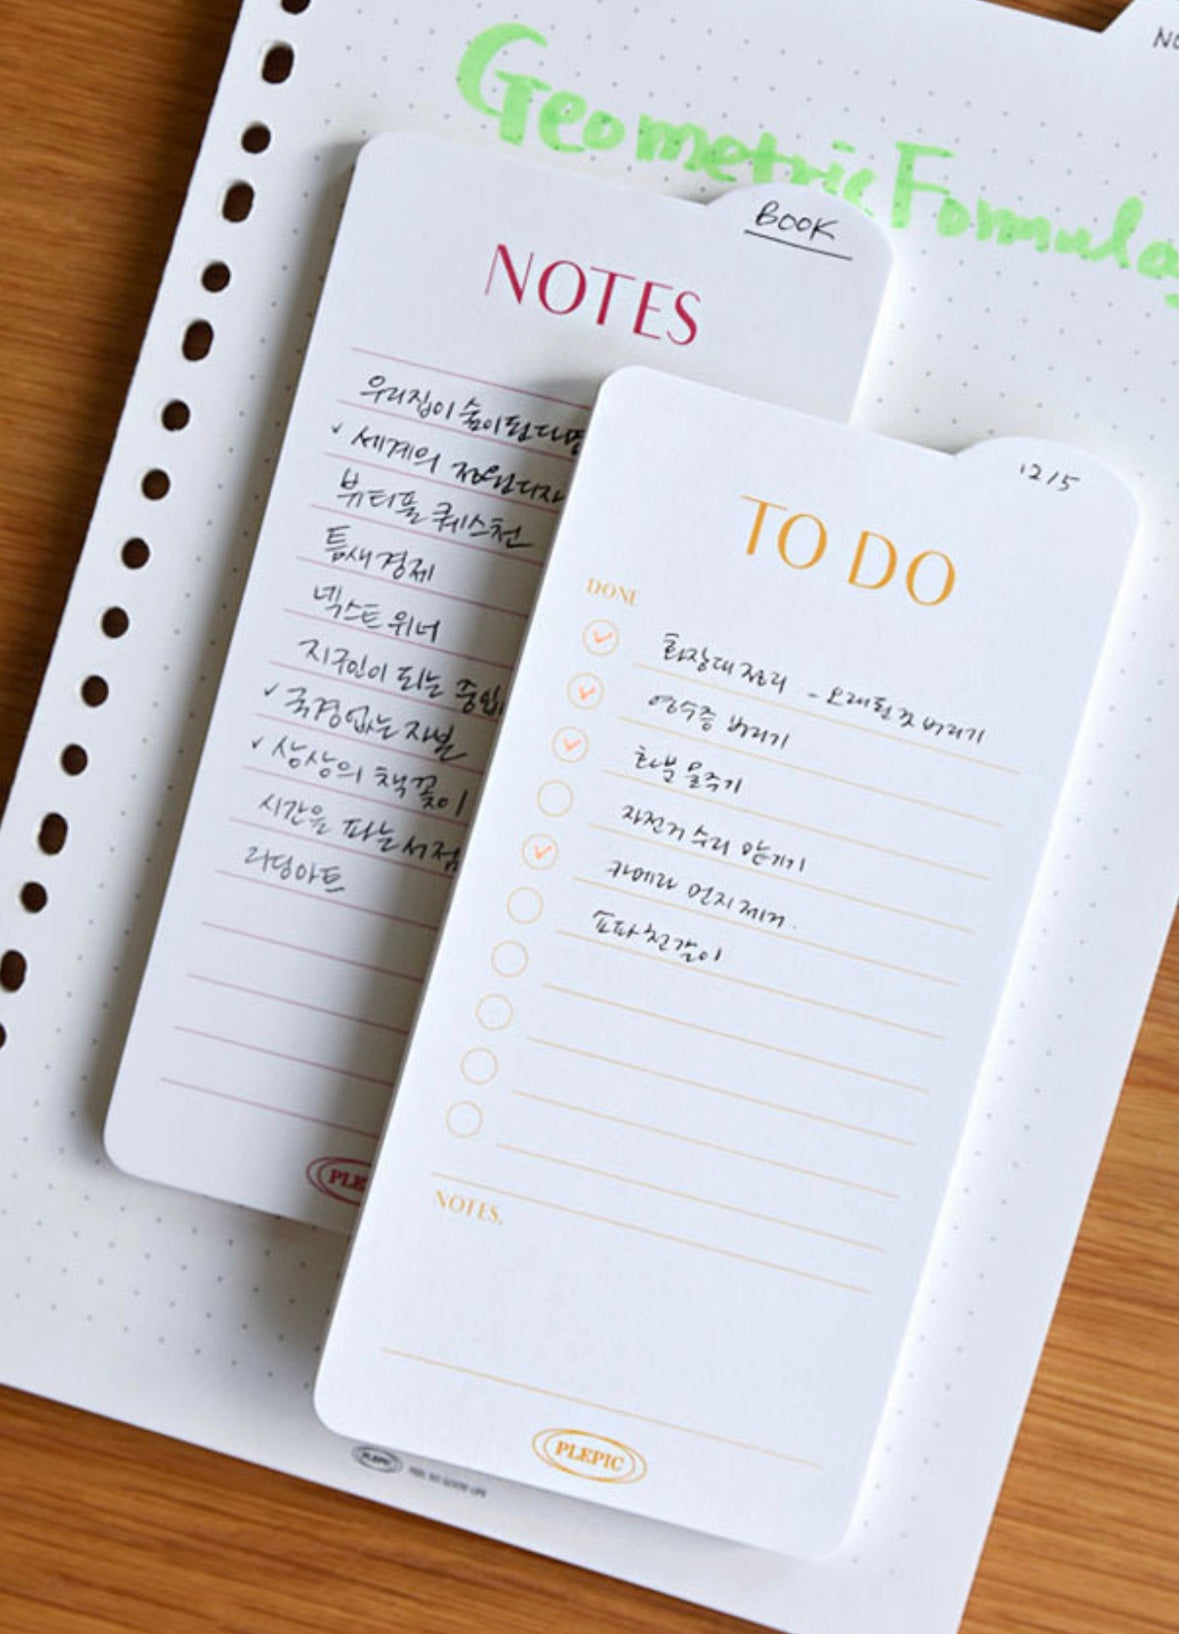 Geometric Formula
BOOK
NOTES
우리집이 숲이 된다면
✓ 세계의 정원 디자
뷰티풀 퀘스천
틈새경제
넥스트 위너
지구인이 되는 중입
✓ 국경없는 자본
✓ 상상의 책꽂이
시간을 파는 서점
리딩아트
PLE
12/5
TO DO
DONE
화장대 정리 - 오래된 것 버리기
영수증 버리기
화분 물주기
자전거 수리 맡기기
카메라 먼지 제거.
소파 천갈이
NOTES.
PLEPIC
PLEPIC FEEL SO GOOD LIFE